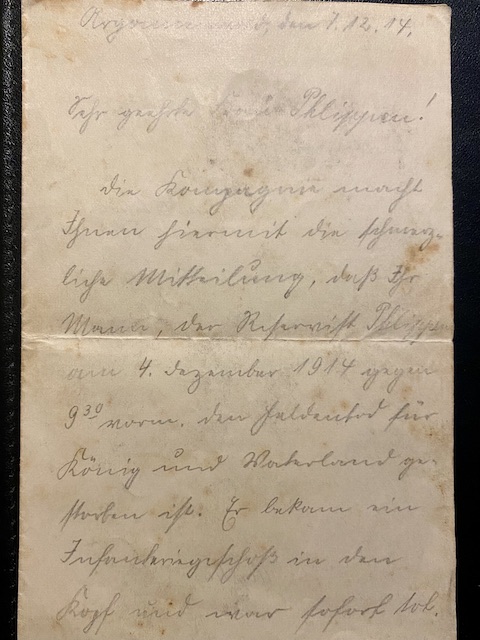 Argonnenwald, den 7.12.14.
Sehr geehrte Frau Phlippen!
Die Kompagnie macht
Ihnen hiermit die schmerz-
liche Mitteilung, daß Ihr
Mann, der Reservist Phlippen
am 4. Dezember 1914 gegen
9 30 vorm. den Heldentod für
König und Vaterland ge-
storben ist. Er bekam ein
Infanteriegeschoß in den
Kopf und war sofort tot.